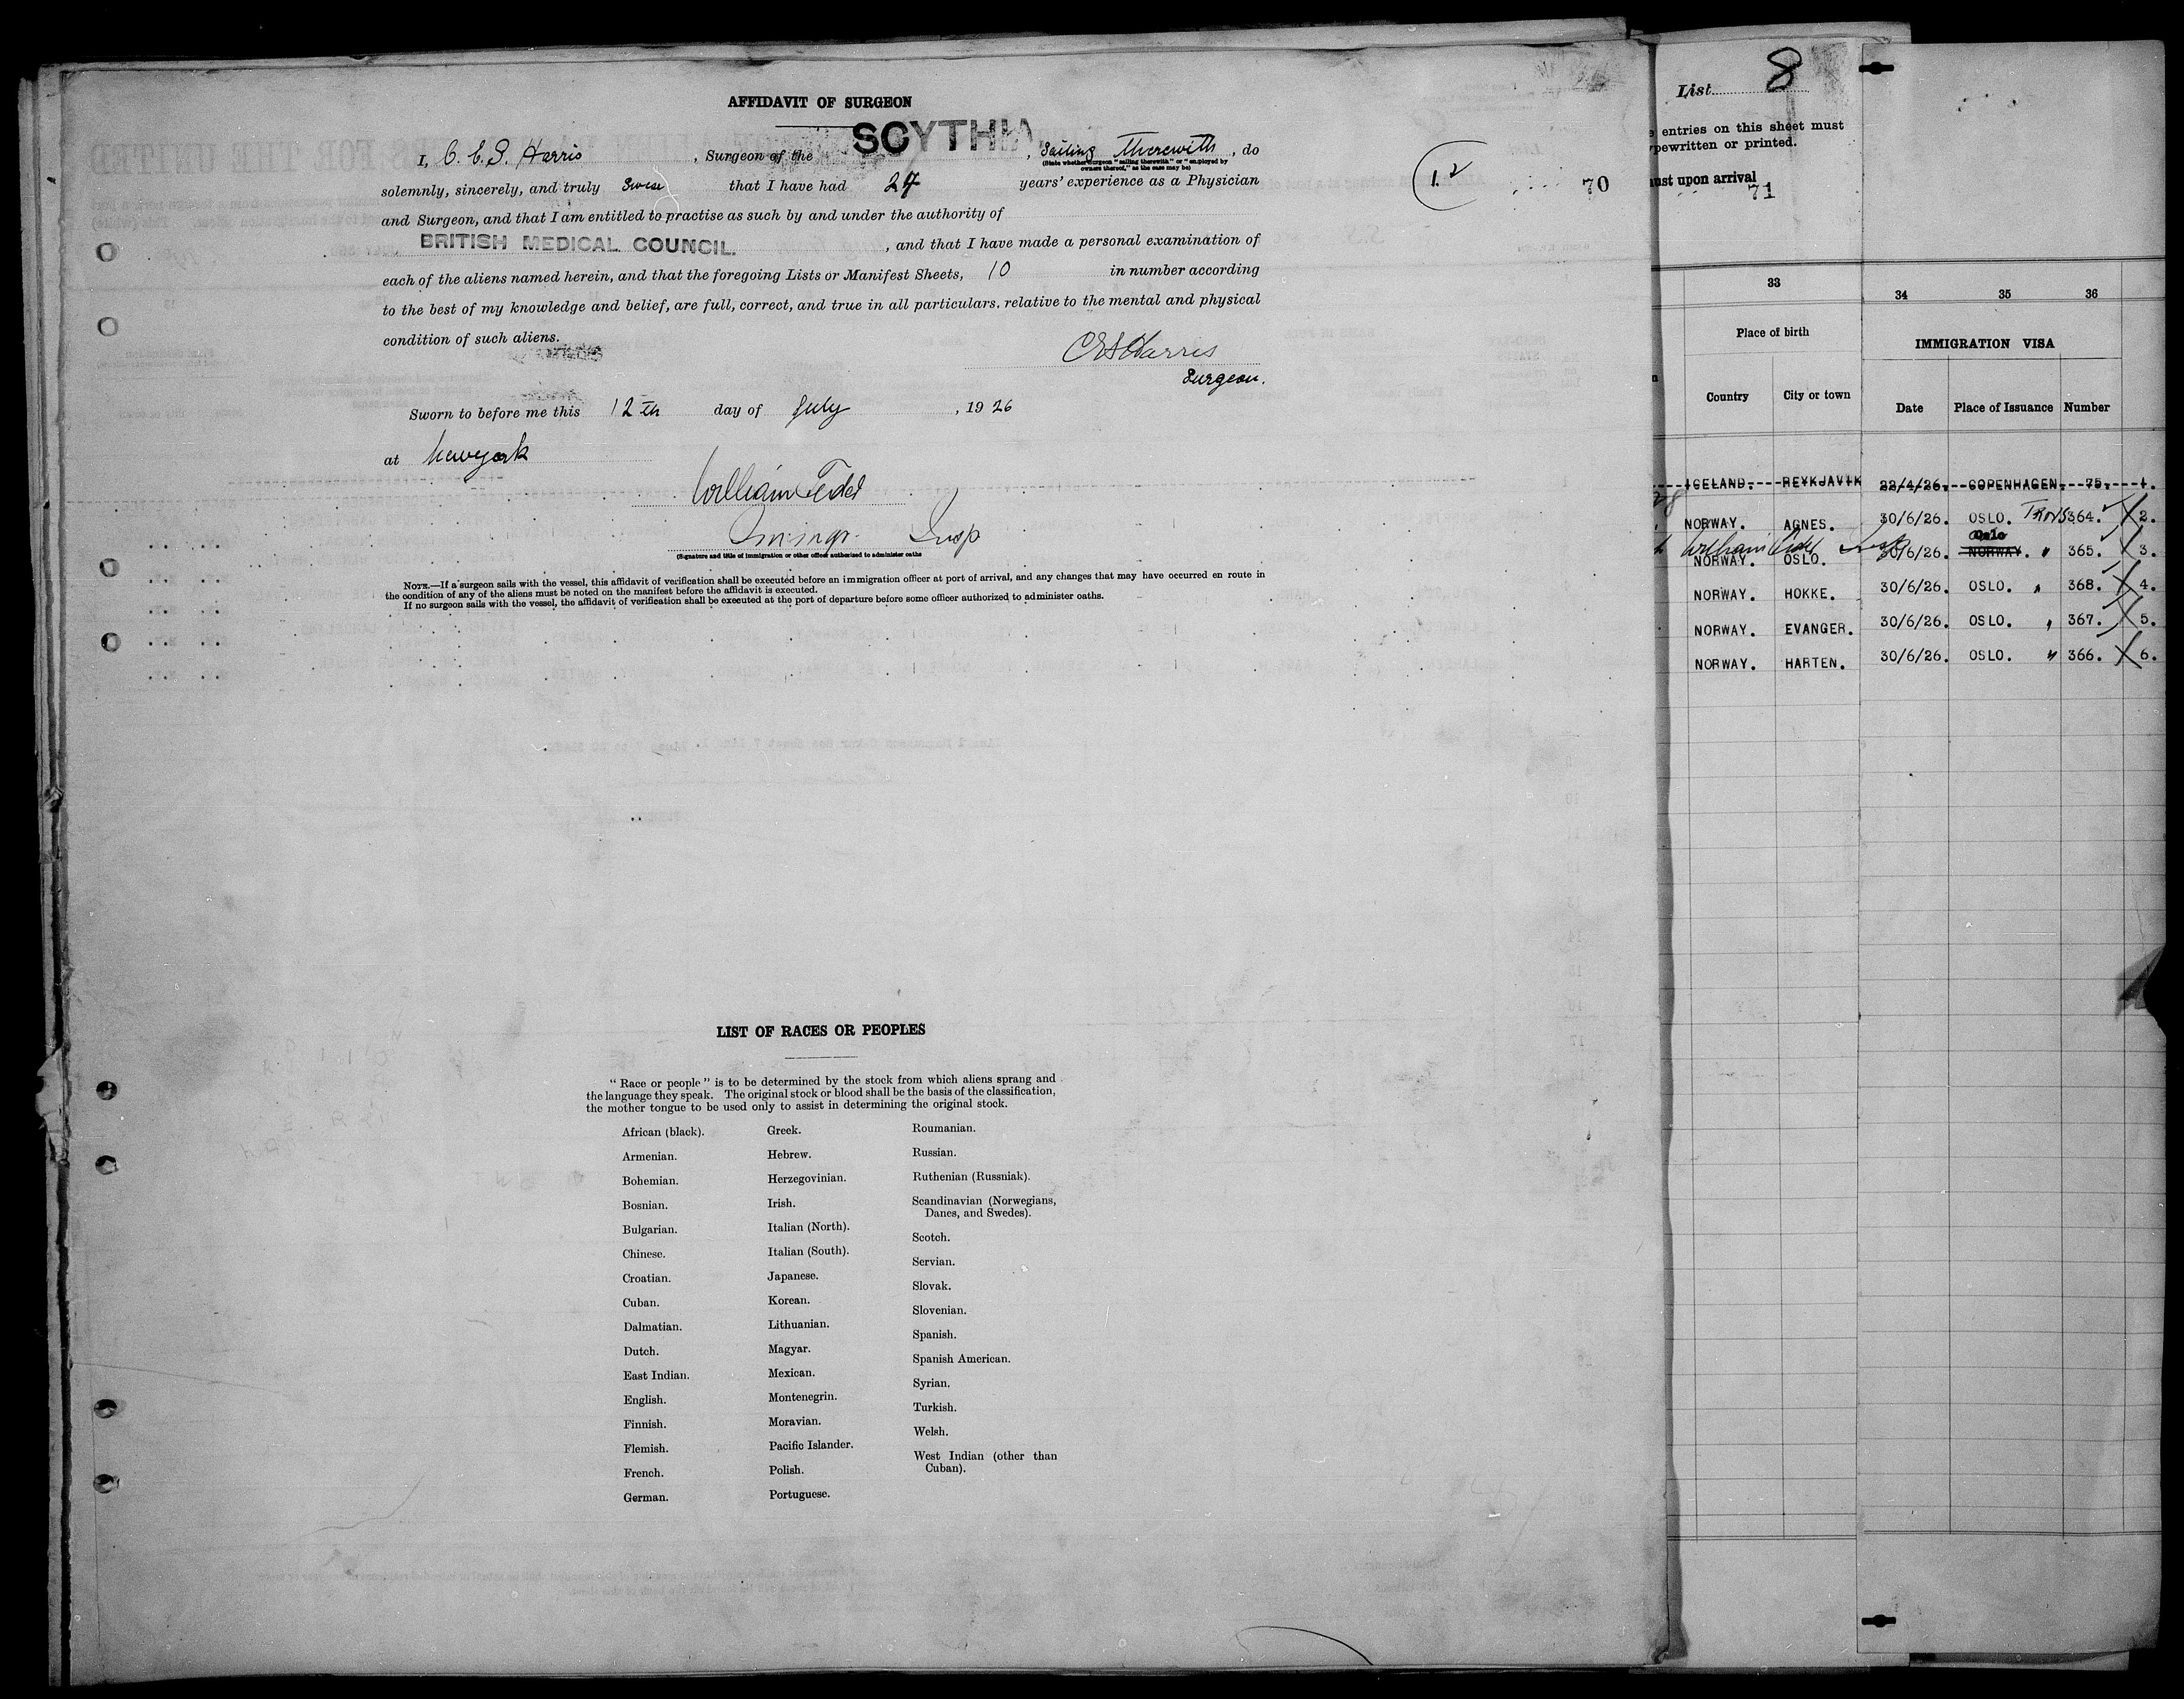 AFFIDAVIT OF SURGEON
I, C. E. S. Harris, Surgeon of the SCYTHIA, Sailing therewith, do
(State whether Surgeon "sailing therewith" or "employed by
owners thereof," as the case may be)
solemnly, sincerely, and truly that I have had 27 years' experience as a Physician
and Surgeon, and that I am entitled to practise as such by and under the authority of
BRITISH MEDICAL COUNCIL., and that I have made a personal examination of
each of the aliens named herein, and that the foregoing Lists or Manifest Sheets, 10 in number according
to the best of my knowledge and belief, are full, correct, and true in all particulars, relative to the mental and physical
condition of such aliens.
CES Harris
Surgeon.
Sworn to before me this 12th day of July, 1926
at New York
William
Insp
(Signature and title of immigration or other officer authorized to administer oaths
NOTE.—If a surgeon sails with the vessel, this affidavit of verification shall be executed before an immigration officer at port of arrival, and any changes that may have occurred en route in
the condition of any of the aliens must be noted on the manifest before the affidavit is executed.
If no surgeon sails with the vessel, the affidavit of verification shall be executed at the port of departure before some officer authorized to administer oaths.
70
LIST OF RACES OR PEOPLES
"Race or people" is to be determined by the stock from which aliens sprang and
the language they speak. The original stock or blood shall be the basis of the classification,
the mother tongue to be used only to assist in determining the original stock.
African (black).
Armenian.
Bohemian.
Bosnian.
Bulgarian.
Chinese.
Croatian.
Cuban.
Dalmatian.
Dutch.
East Indian.
English.
Finnish.
Flemish.
French.
German.
Greek.
Hebrew.
Herzegovinian.
Irish.
Italian (North).
Italian (South).
Japanese.
Korean.
Lithuanian.
Magyar.
Mexican.
Montenegrin.
Moravian.
Pacific Islander.
Polish.
Portuguese.
Roumanian.
Russian.
Ruthenian (Russniak).
Scandinavian (Norwegians,
Danes, and Swedes).
Scotch.
Servian.
Slovak.
Slovenian.
Spanish.
Spanish American.
Syrian.
Turkish.
Welsh.
West Indian (other than
Cuban).
List 8
entries on this sheet must
pewritten or printed.
ust upon arrival
71
33 34 35 36
Place of birth IMMIGRATION VISA
Country City or town Date Place of Issuance Number
ICELAND. REYKJAVIK 22/4/26. COPENHAGEN. 75. 1.
NORWAY. AGNES. 30/6/26. OSLO. 364. 2.
NORWAY. OSLO. 30/6/26. NORWAY. Oslo " 365. 3.
NORWAY. HOKKE. 30/6/26. OSLO. " 368. 4.
NORWAY. EVANGER. 30/6/26. OSLO. " 367. 5.
NORWAY. HARTEN. 30/6/26. OSLO. " 366. 6.